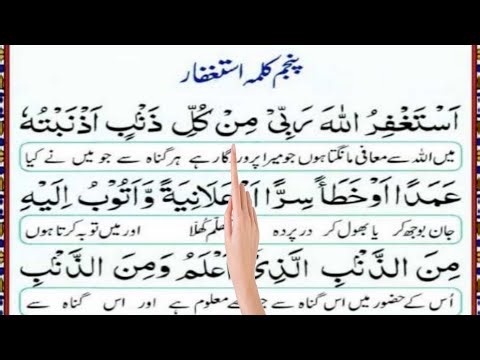 پنجم کلمہ استغفار
اَسْتَغْفِرُ اللّٰهَ رَبِّىْ مِنْ كُلِّ ذَنْۢبٍ اَذْنَبْتُهٗ
میں اللہ سے معافی مانگتا ہوں جو میرا پروردگار ہے ہر گناہ سے جو میں نے کیا
عَمَدًا اَوْ خَطَأً سِرًّا وَّاَتُوْبُ اِلَيْهِ
جان بوجھ کر یا بھول کر در پردہ کھلا اور میں توبہ کرتا ہوں
مِنَ الذَّنْۢبِ الَّذِىْ اَعْلَمُ وَمِنَ الذَّنْۢبِ
اُس کے حضور میں اس گناہ سے معلوم ہے اور اس گناہ سے